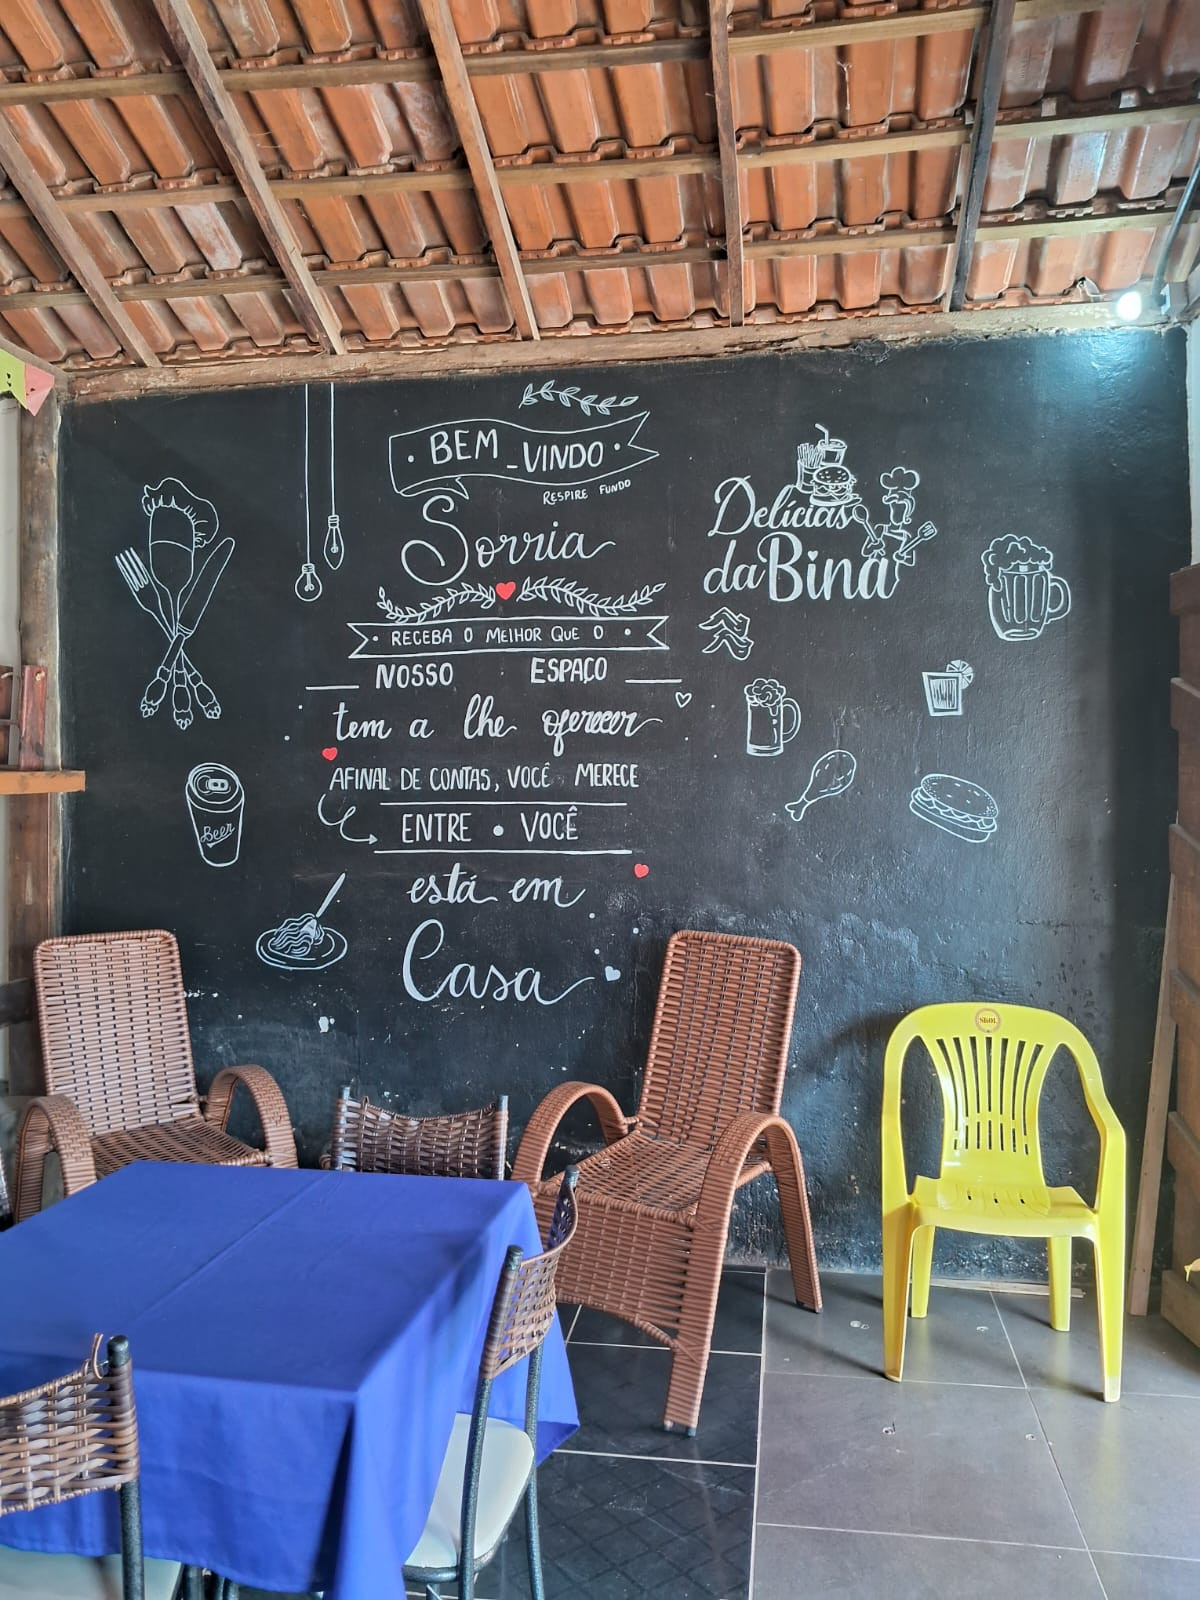 BEM-VINDO
RESPIRE FUNDO
Sorria
RECEBA O MELHOR QUE O
NOSSO ESPAÇO
tem a lhe oferecer
AFINAL DE CONTAS, VOCÊ MERECE
ENTRE • VOCÊ
está em
Casa
Delícias
da Bina
Beer
SKOL